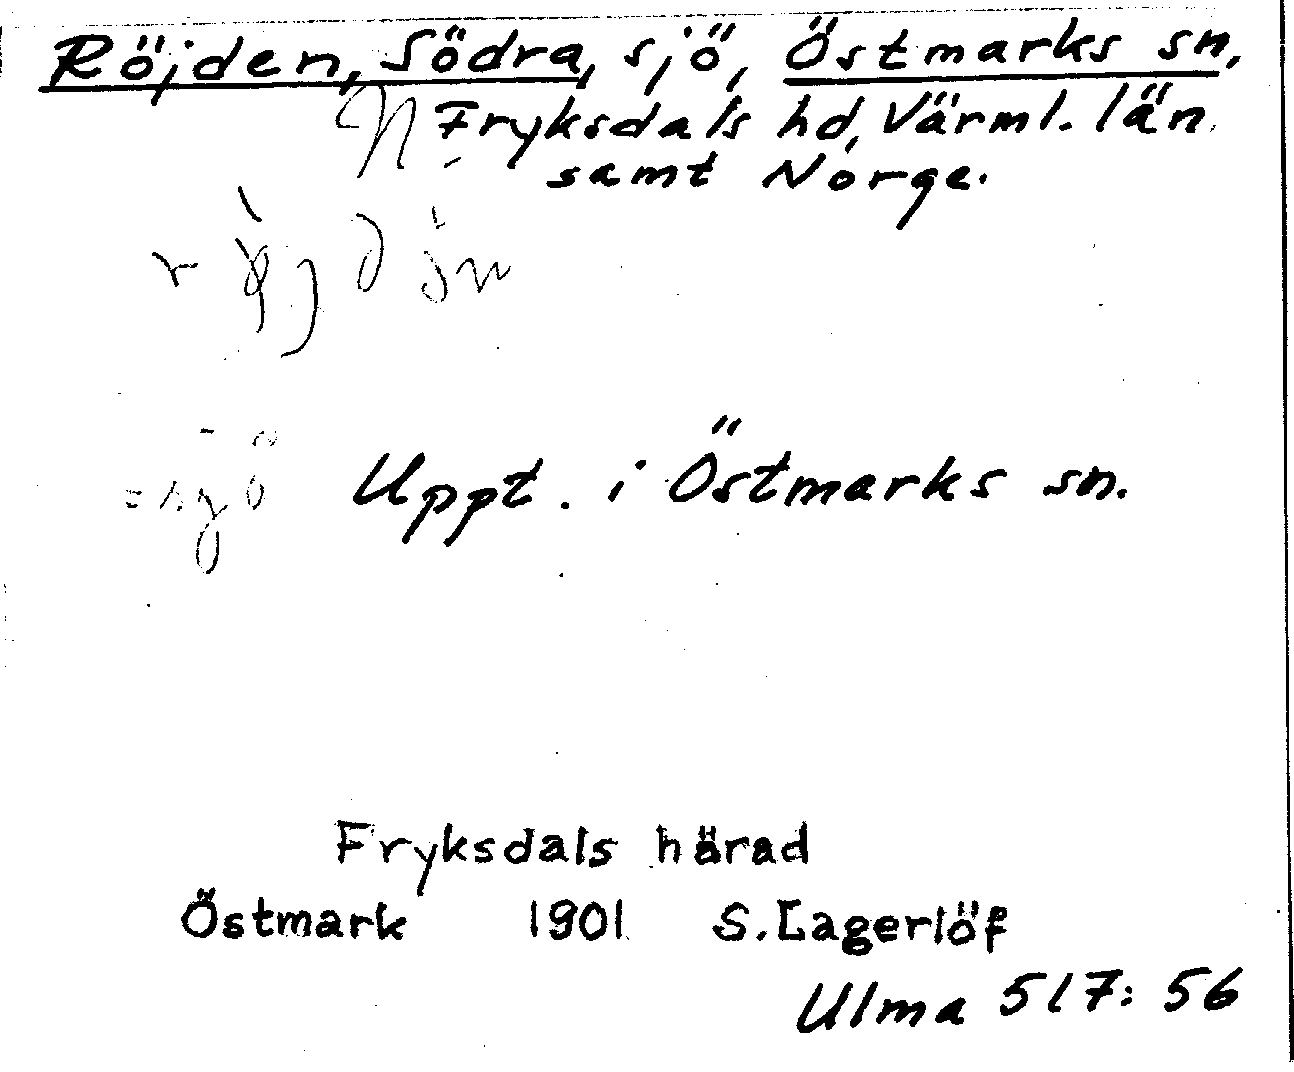 Röjden, Södra, sjö, Östmarks sn,
N. Fryksdals hd, Värml. län.
samt Norge.
Uppt. i Östmarks sn.
Fryksdals härad
Östmark 1901 S. Lagerlöf
Ulma 517: 56